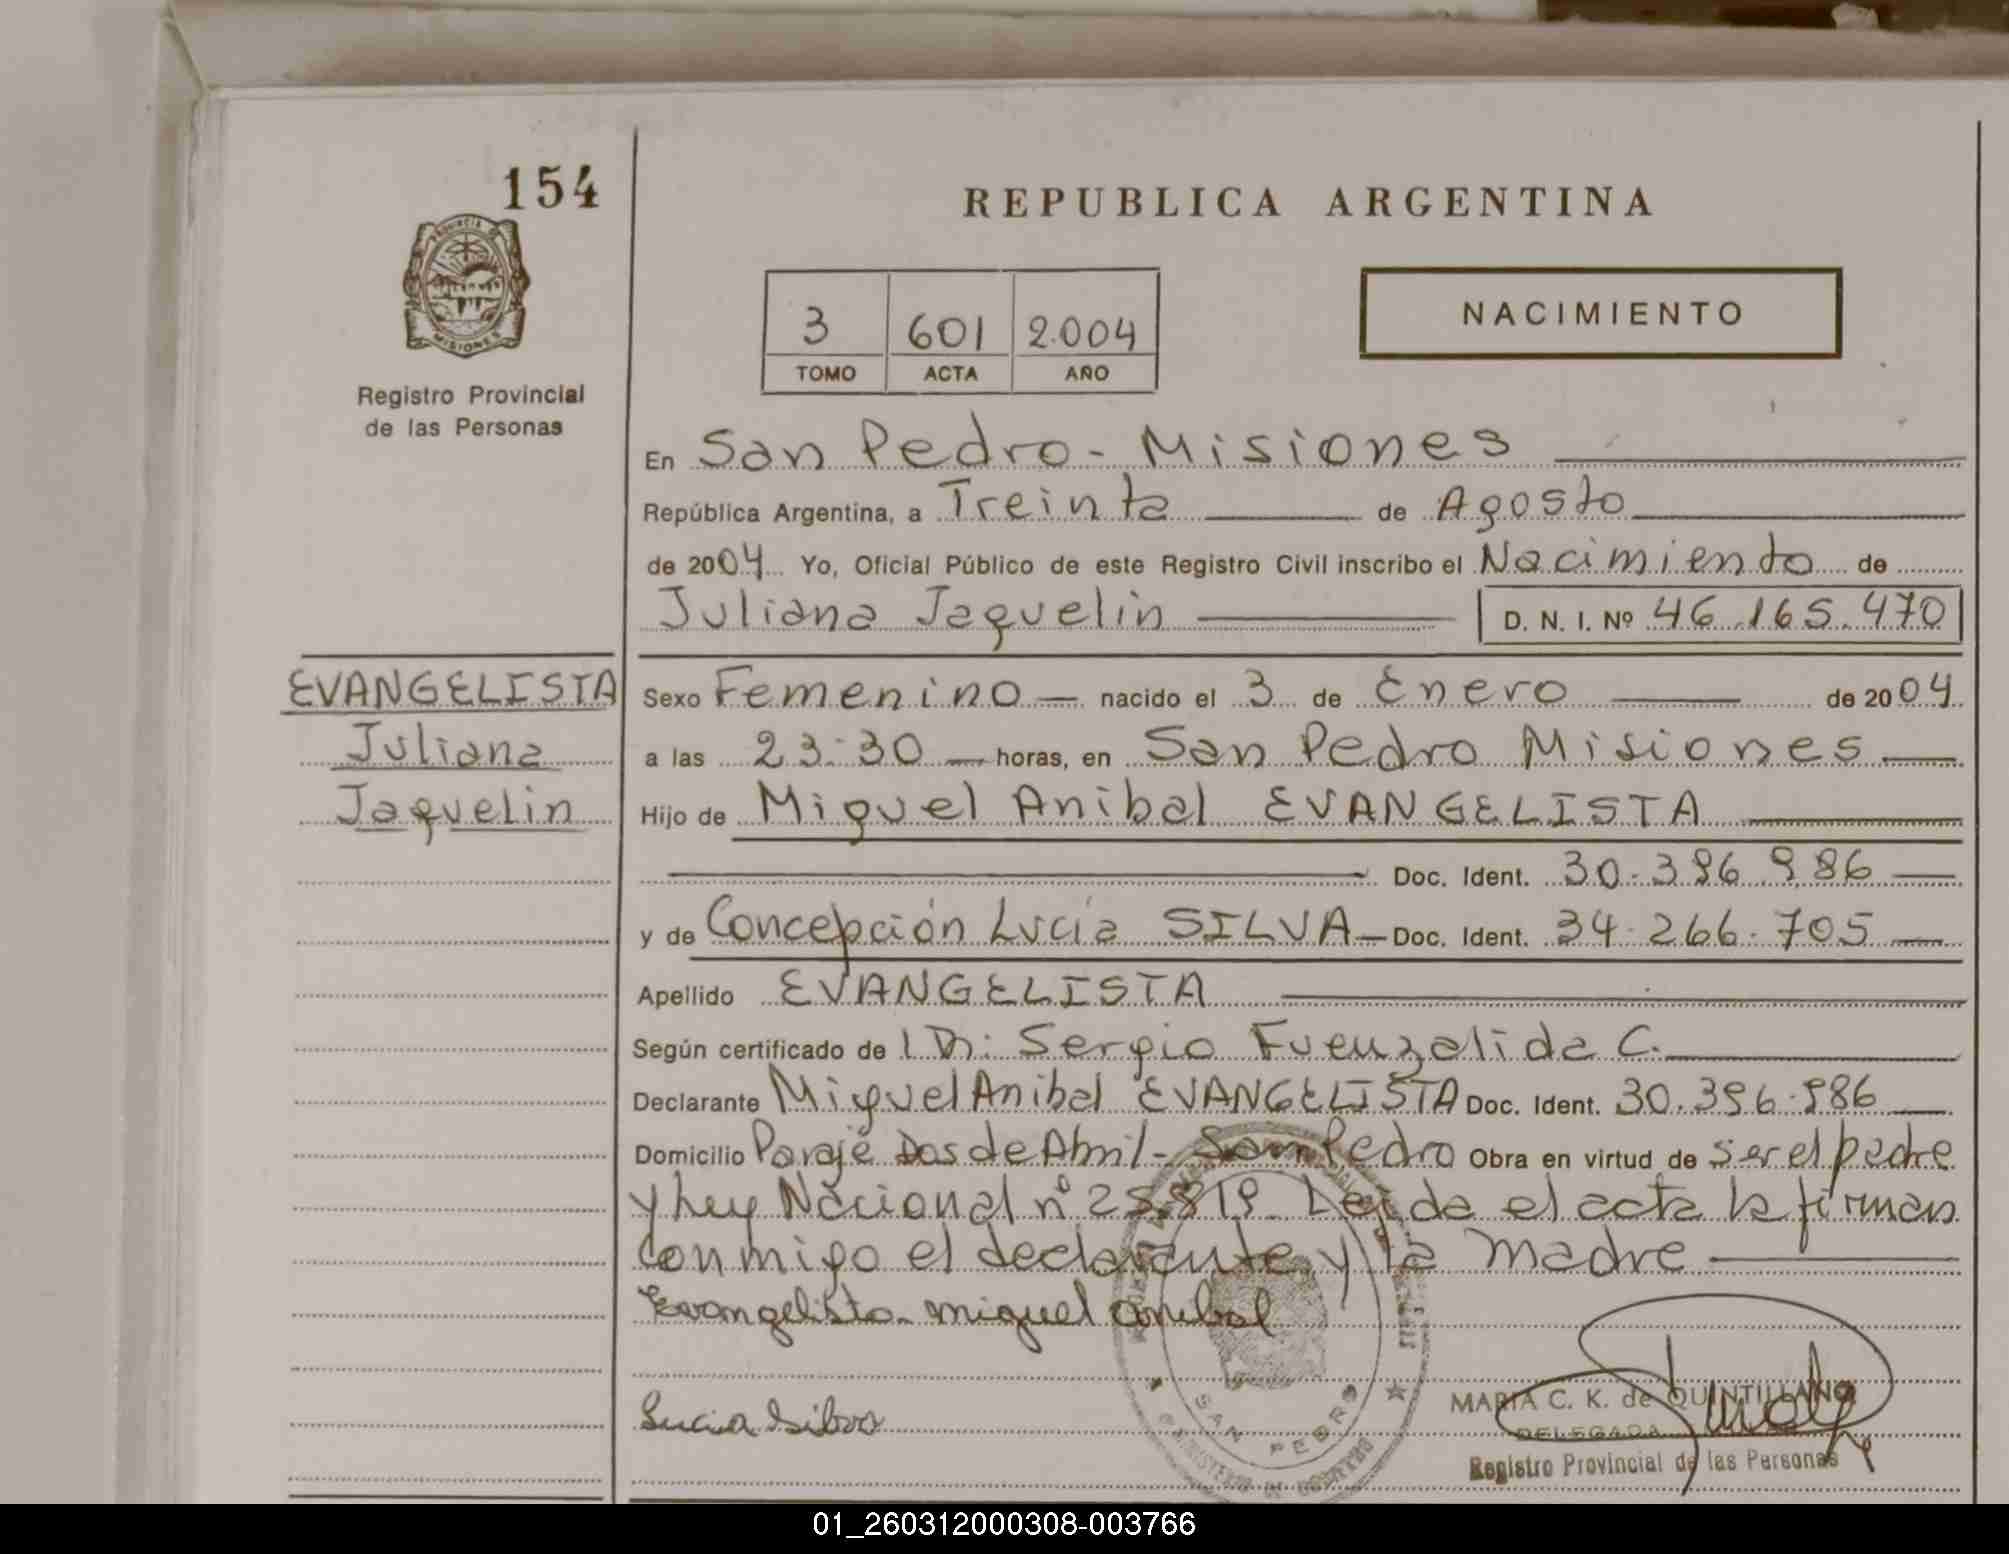 154
PROVINCIA DE
MISIONES
Registro Provincial
de las Personas
REPUBLICA ARGENTINA
3 601 2.004
TOMO ACTA AÑO
NACIMIENTO
En San Pedro - Misiones
República Argentina, a Treinta de Agosto
de 2004 Yo, Oficial Público de este Registro Civil inscribo el Nacimiento de
Juliana Jaquelin D. N. I. Nº 46.165.470
EVANGELISTA
Juliana
Jaquelin
Sexo Femenino nacido el 3 de Enero de 2004
a las 23:30 horas, en San Pedro Misiones
Hijo de Miguel Anibal EVANGELISTA
Doc. Ident. 30.396.986
y de Concepción Lucía SILVA Doc. Ident. 34.266.705
Apellido EVANGELISTA
Según certificado de Dr: Sergio Fuenzalida C.
Declarante Miguel Anibal EVANGELISTA Doc. Ident. 30.396.986
Domicilio Paraje Dos de Abril - San Pedro Obra en virtud de ser el padre
y Ley Nacional nº 25.819. Leida el acta la firman
conmigo el declarante y la madre
Evangelista miguel anibal
Lucia Silva
SAN PEDRO
MINISTERIO DE GOBIERNO
MARIA C. K. de QUINTILLANO
DELEGADA
Registro Provincial de las Personas
01_260312000308-003766